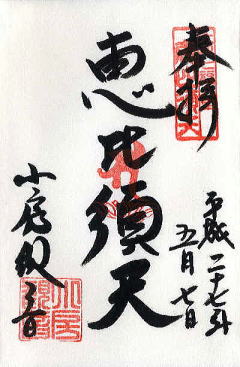 奉拝
平成二十七年
五月七日
恵比須天
小房観音